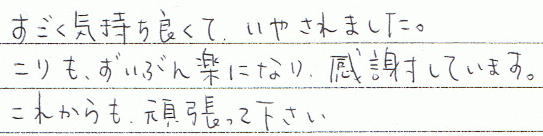 すごく気持ち良くて、いやされました。
こりも、ずいぶん楽になり、感謝しています。
これからも、頑張って下さい